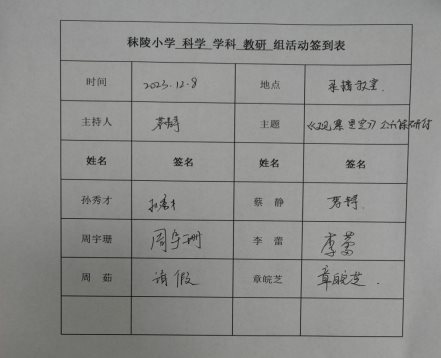 秣陵小学 科学 学科 教研 组活动签到表
时间 2023.12.8 地点 录播教室
主持人 蔡静 主题 《观察星空》公开课研讨
姓名 签名 姓名 签名
孙秀才 孙秀才 蔡静 蔡静
周宇珊 周宇珊 李蕾 李蕾
周茹 请假 章皖芝 章皖芝